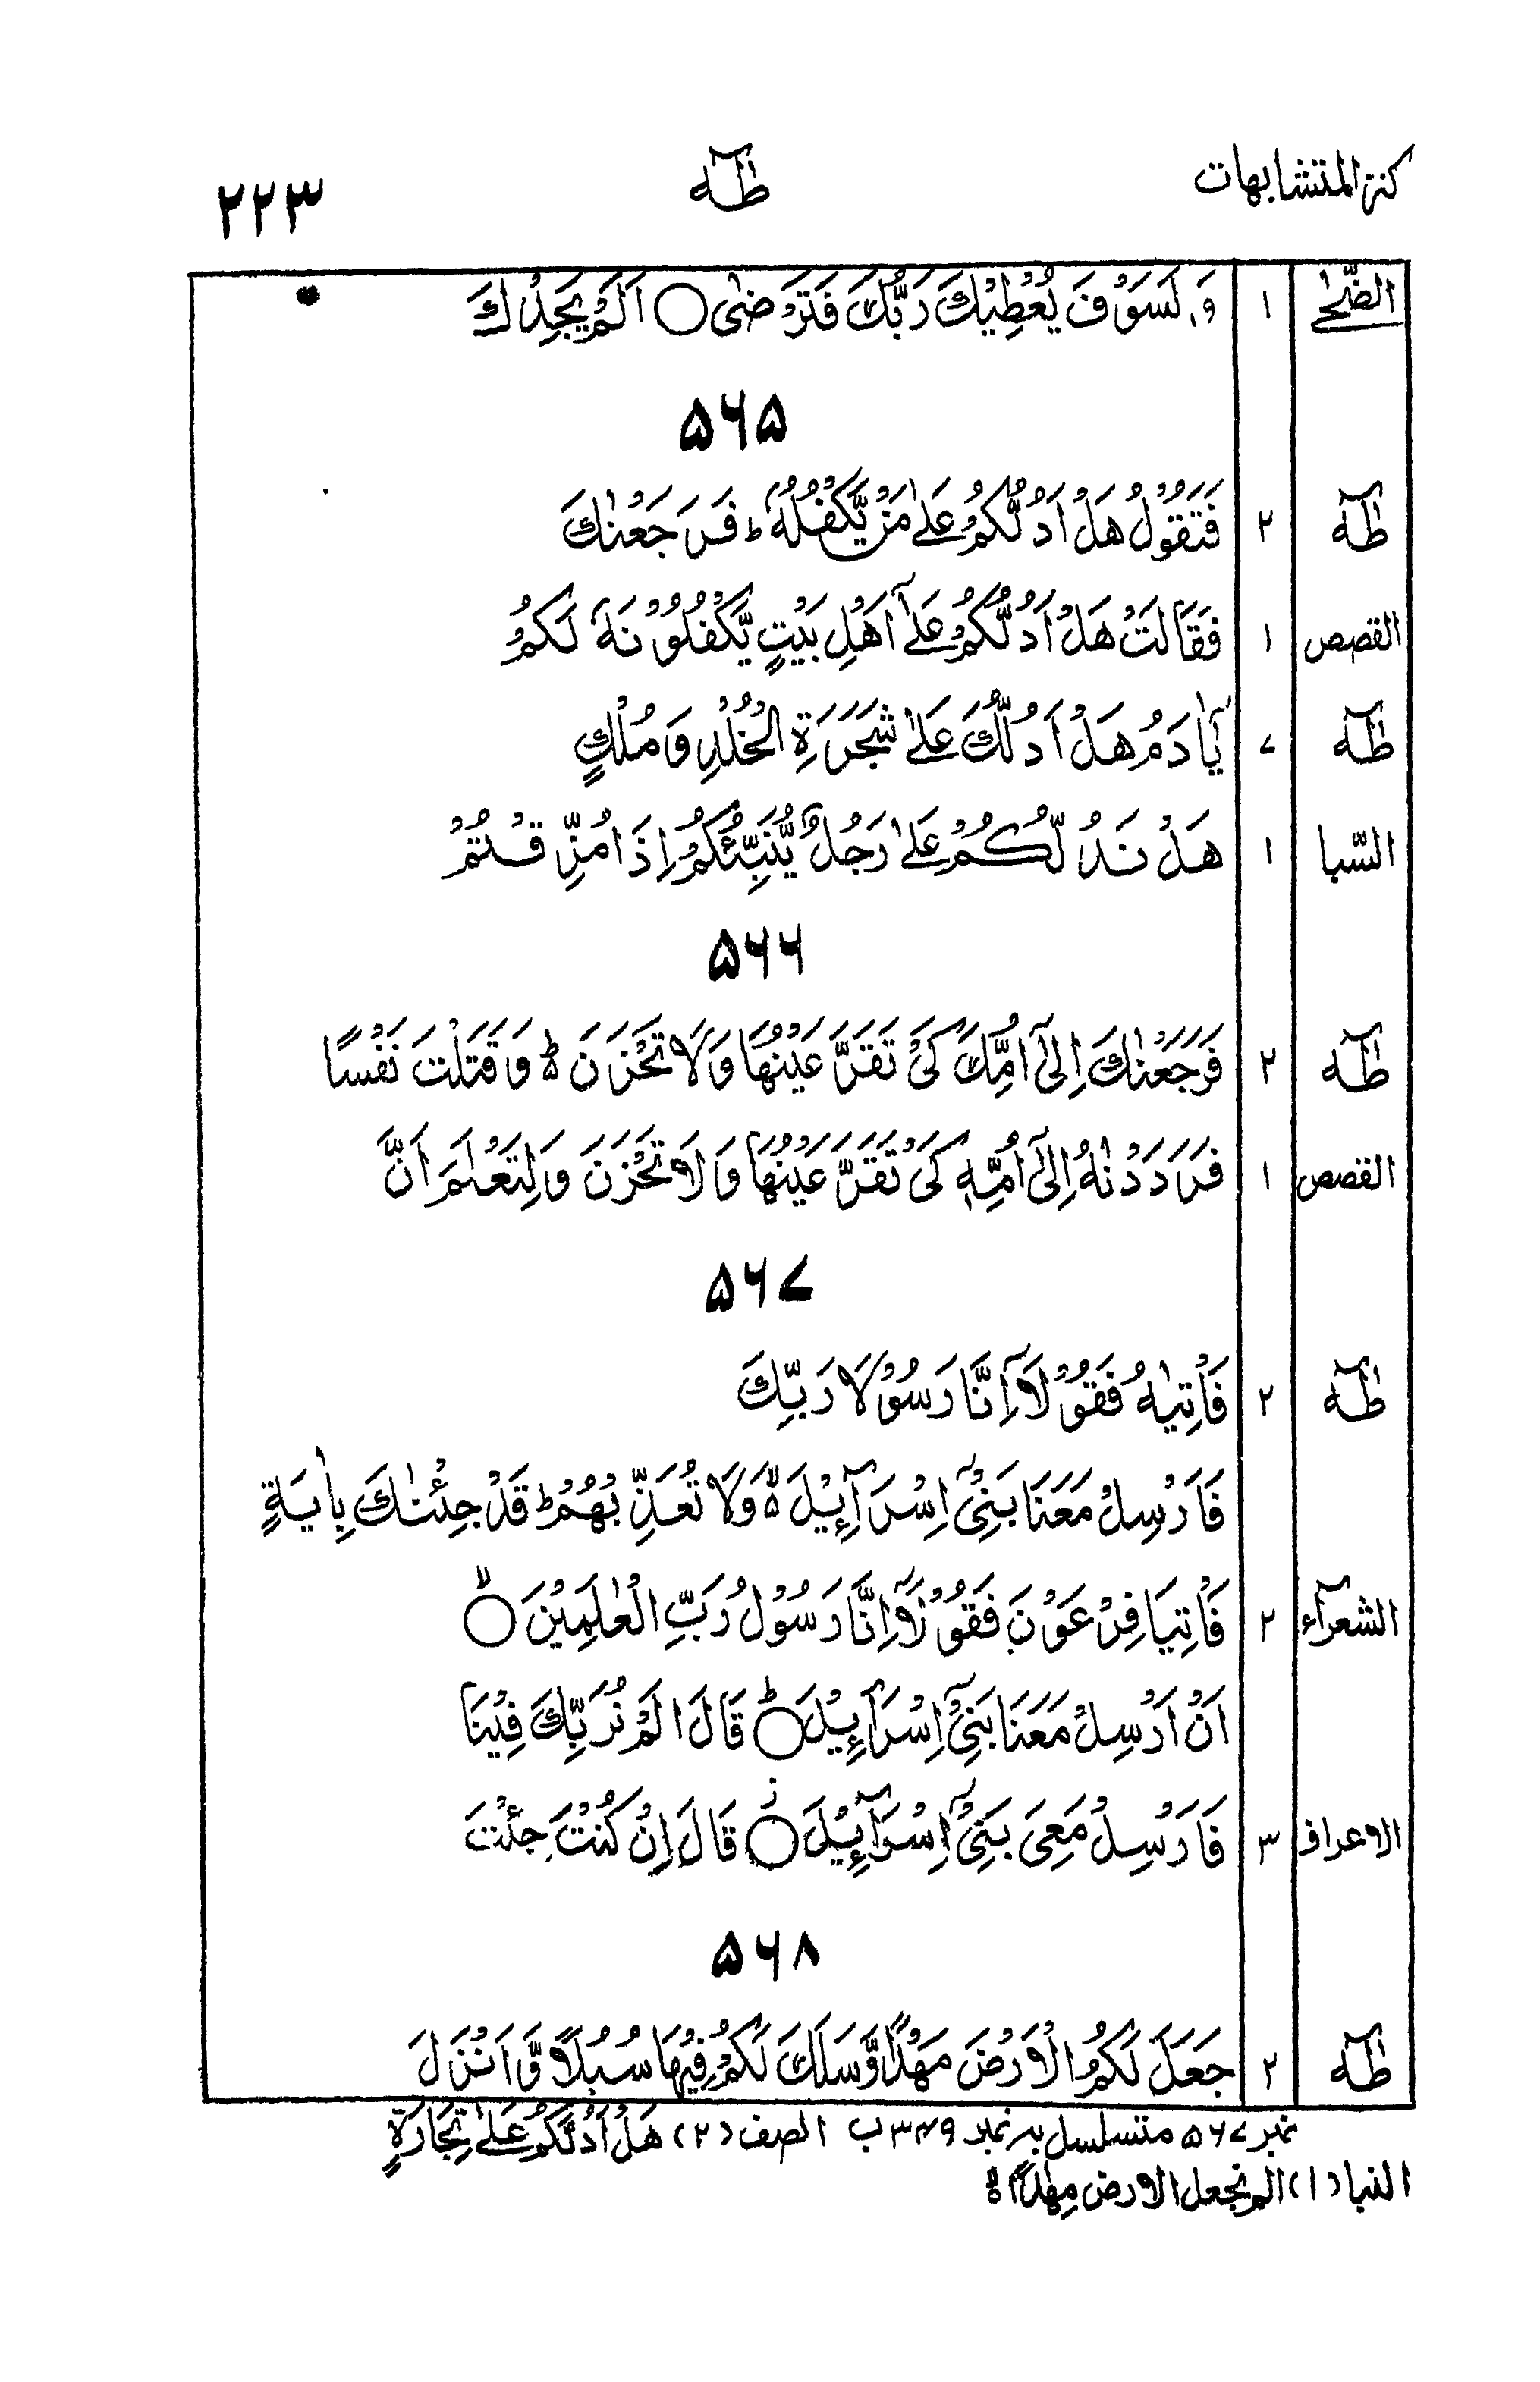 كنز المتشابهات طٰهٰ ۲۲۳
الضّحٰے ۱ وَلَسَوْفَ يُعْطِيْكَ رَبُّكَ فَتَرْضٰى ○ اَلَمْ يَجِدْكَ
۵۶۵
طٰهٰ ۲ فَتَقُوْلُ هَلْ اَدُلُّكُمْ عَلٰے مَنْ يَّكْفُلُهٗ ؕ فَرَجَعْنٰكَ
القصص ۱ فَقَالَتْ هَلْ اَدُلُّكُمْ عَلٰۤے اَهْلِ بَيْتٍ يَّكْفُلُوْنَهٗ لَكُمْ
طٰهٰ ۷ يٰۤاٰدَمُ هَلْ اَدُلُّكَ عَلٰے شَجَرَةِ الْخُلْدِ وَمُلْكٍ
السّبا ۱ هَلْ نَدُلُّكُمْ عَلٰے رَجُلٍ يُّنَبِّئُكُمْ اِذَا مُزِّقْتُمْ
۵۶۶
طٰهٰ ۲ فَرَجَعْنٰكَ اِلٰۤى اُمِّكَ كَىْ تَقَرَّ عَيْنُهَا وَلَا تَحْزَنَ ؕ۬ وَقَتَلْتَ نَفْسًا
القصص ۱ فَرَدَدْنٰهُ اِلٰۤى اُمِّهٖ كَىْ تَقَرَّ عَيْنُهَا وَلَا تَحْزَنَ وَلِتَعْلَمَ اَنَّ
۵۶۷
طٰهٰ ۲ فَاْتِيٰهُ فَقُوْلَاۤ اِنَّا رَسُوْلَا رَبِّكَ
فَاَرْسِلْ مَعَنَا بَنِىْۤ اِسْرَآئِيْلَ ۙ۬ وَلَا تُعَذِّبْهُمْ ؕ قَدْ جِئْنٰكَ بِاٰيَةٍ
الشعرآء ۲ فَاْتِيَا فِرْعَوْنَ فَقُوْلَاۤ اِنَّا رَسُوْلُ رَبِّ الْعٰلَمِيْنَ ○ۙ
اَنْ اَرْسِلْ مَعَنَا بَنِىْۤ اِسْرَآئِيْلَ ○ؕ قَالَ اَلَمْ نُرَبِّكَ فِيْنَا
الاعراف ۳ فَاَرْسِلْ مَعِىَ بَنِىْۤ اِسْرَآئِيْلَ ○ؕ قَالَ اِنْ كُنْتَ جِئْتَ
۵۶۸
طٰهٰ ۲ جَعَلَ لَكُمُ الْاَرْضَ مَهْدًا وَّسَلَكَ لَكُمْ فِيْهَا سُبُلًا وَّاَنْزَلَ
نمبر ۵۶۷ متسلسل بہ نمبر ۳۴۹ب الصف (۲) هَلْ اَدُلُّكُمْ عَلٰے تِجَارَةٍ
النبا (۱) الم نجعل الارض مِهٰدًا ۙ